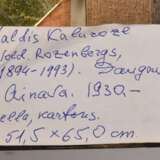 aldis Kalnroze
old. Rozenbergs,
(1894-1993). Daugav
Ainava. 1930.-
ella, kartons.
51,5 x 65,0 cm.